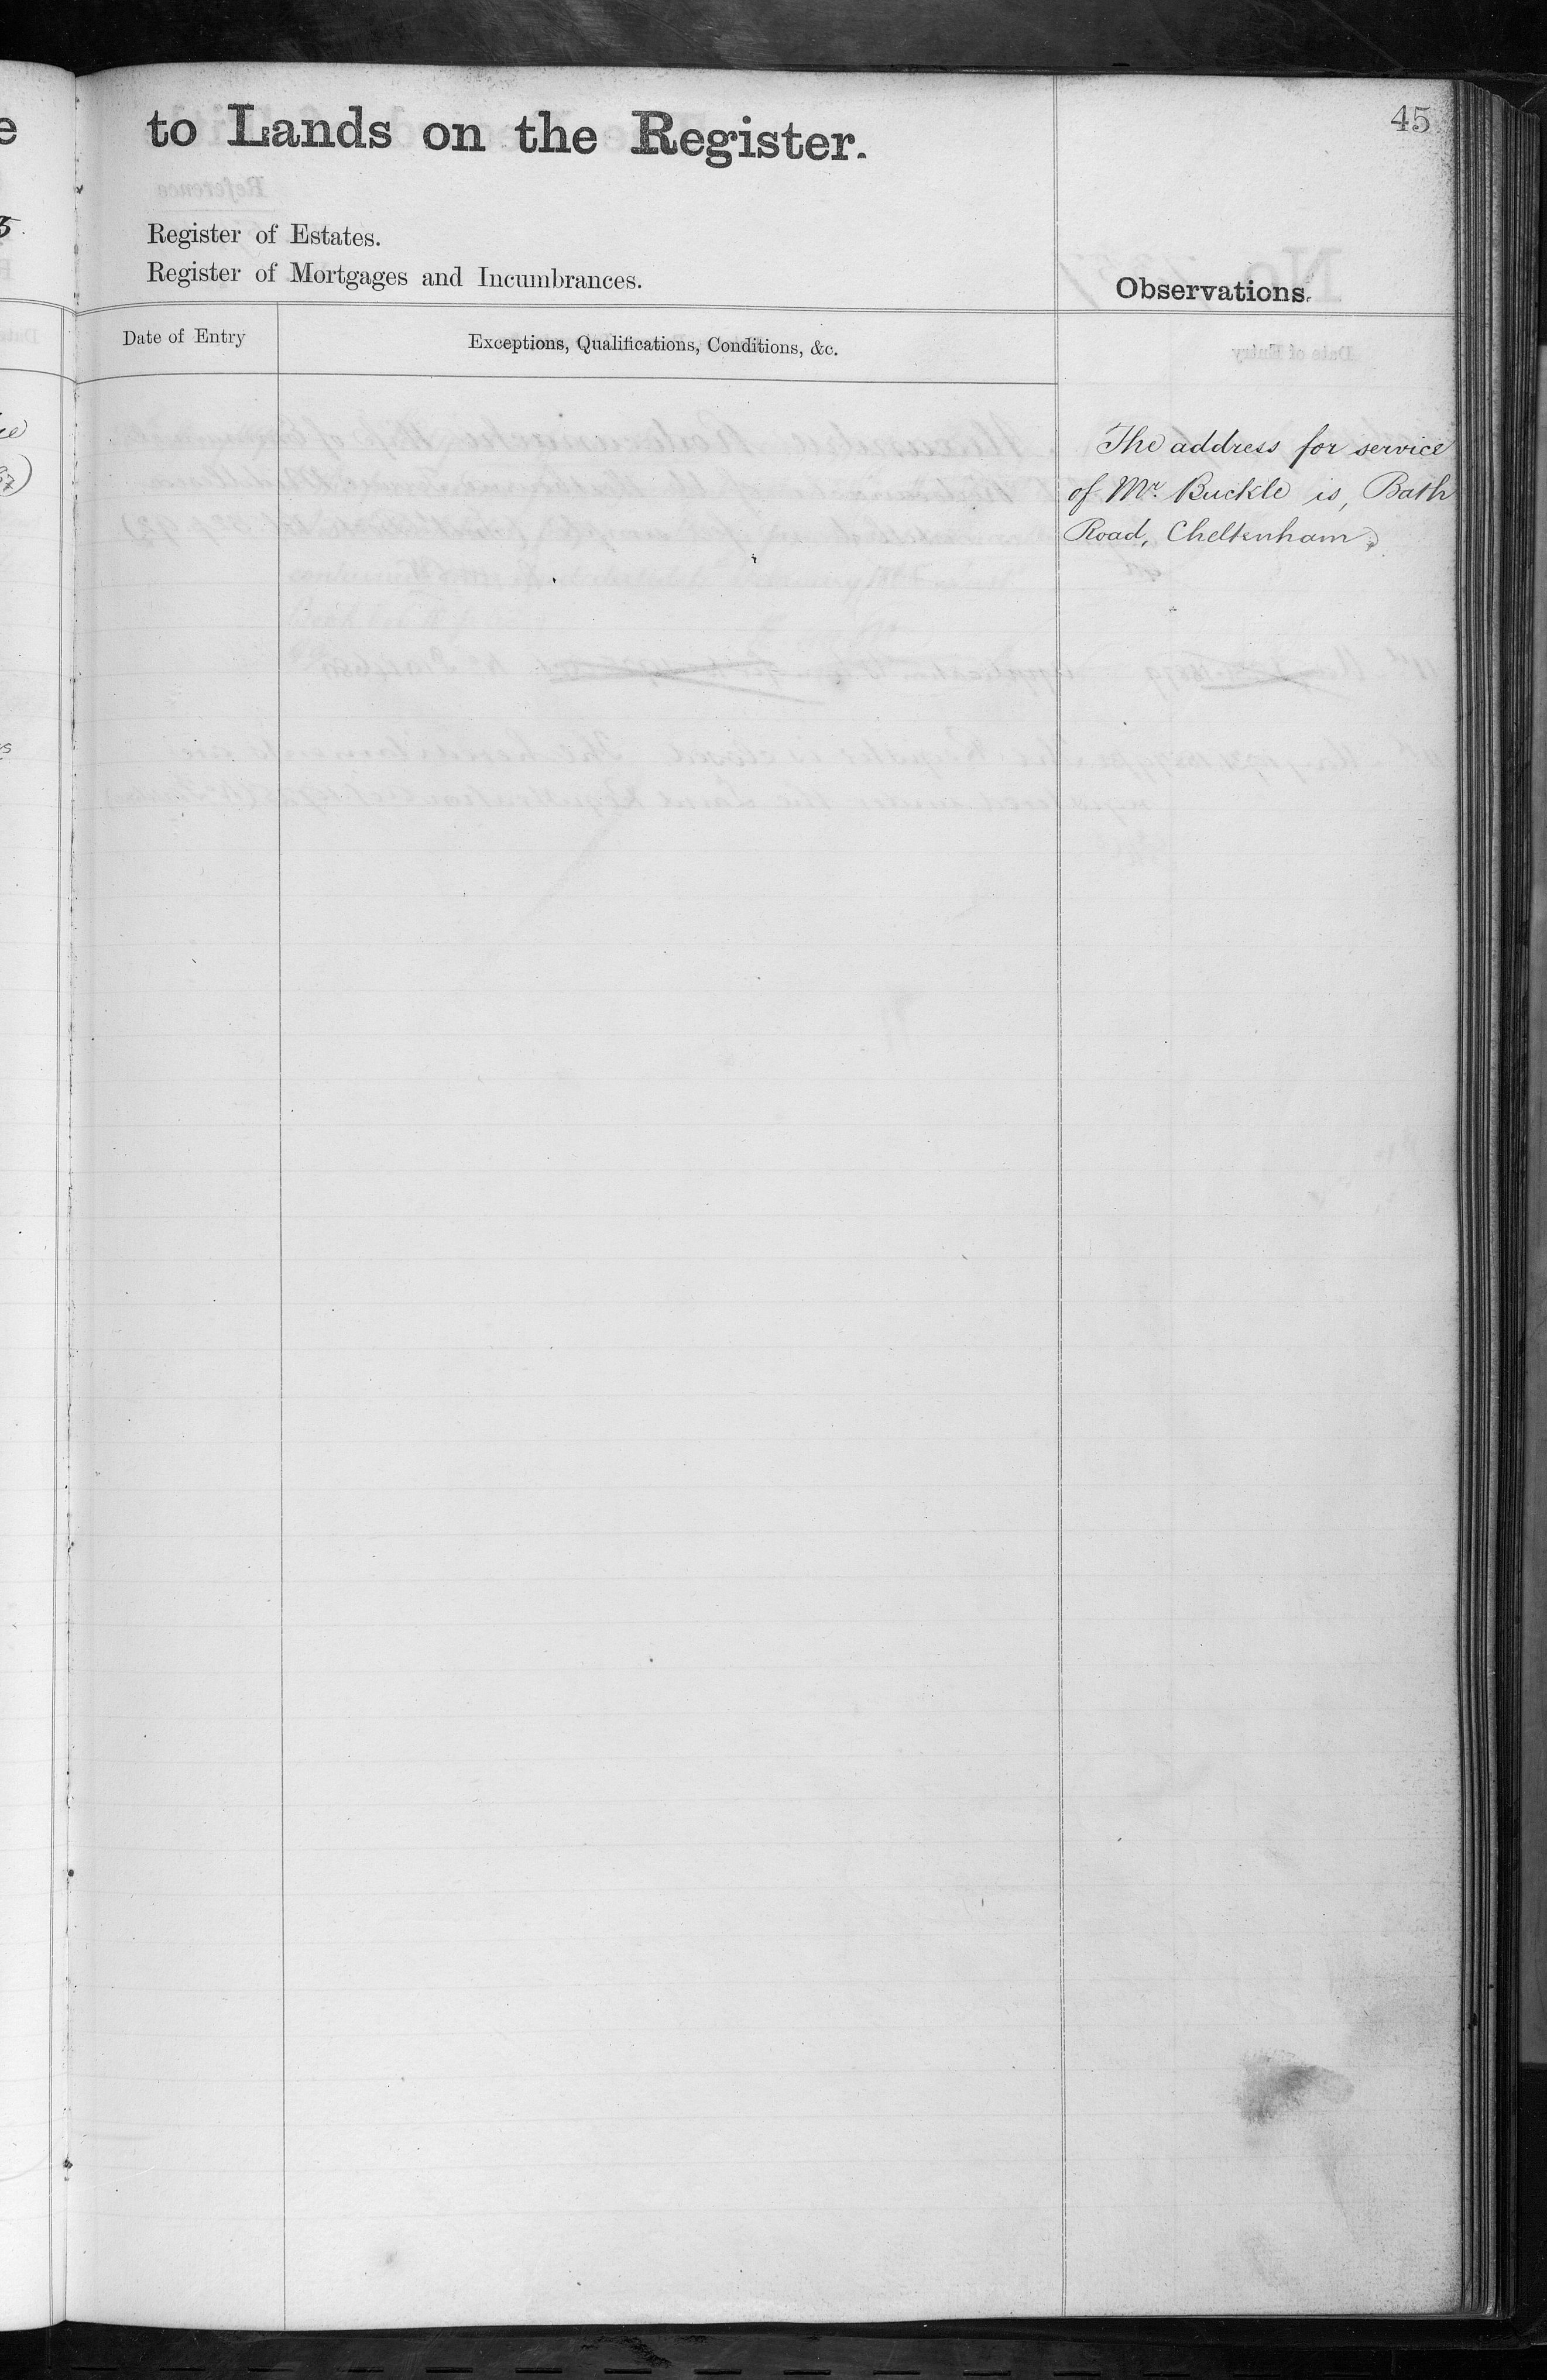 45
to Lands on the Register.
Register of Estates.
Register of Mortgages and Incumbrances.
Observations.
Date of Entry
Exceptions, Qualifications, Conditions, &c.
The address for service
of Mr. Buckle is, Bath
Road, Cheltenham.